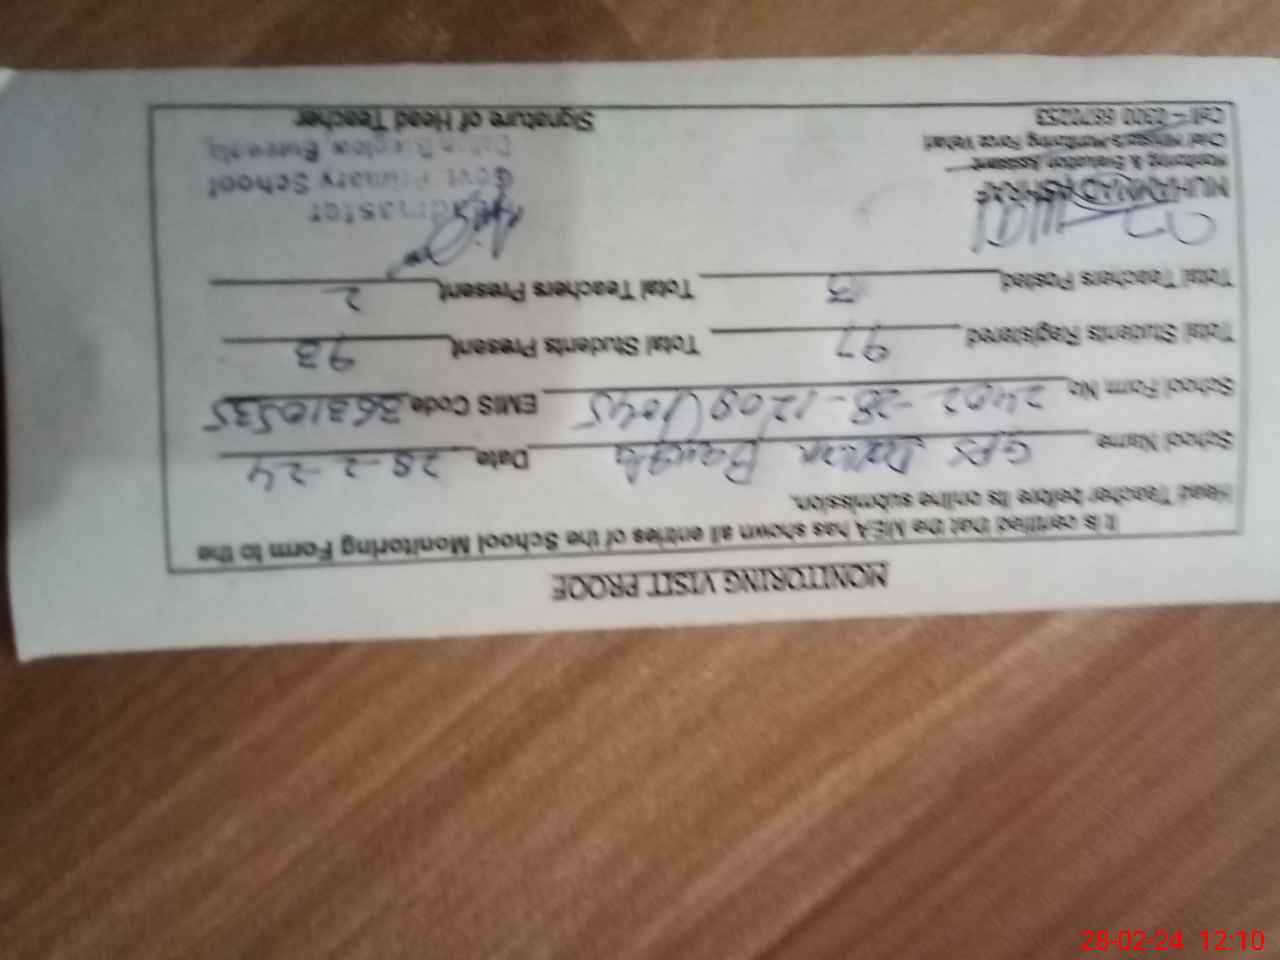 MONITORING VISIT PROOF
It is certified that the MEA has shown all entries of the School Monitoring Form to the
Head Teacher before its online submission.
School Name GPS Date 28-2-24
School Form No 2402-28-1208 EMIS Code 36310535
Total Students Registered 97 Total Students Present 93
Total Teachers Posted 3 Total Teachers Present 2
MUHAMMAD ASHRAF
Monitoring & Evaluation Assistant
Chief Minister's Monitoring Force Vehari
Cell - 0300 6870253
Headmaster
Govt. Primary School
Signature of Head Teacher
28-02-24 12:10